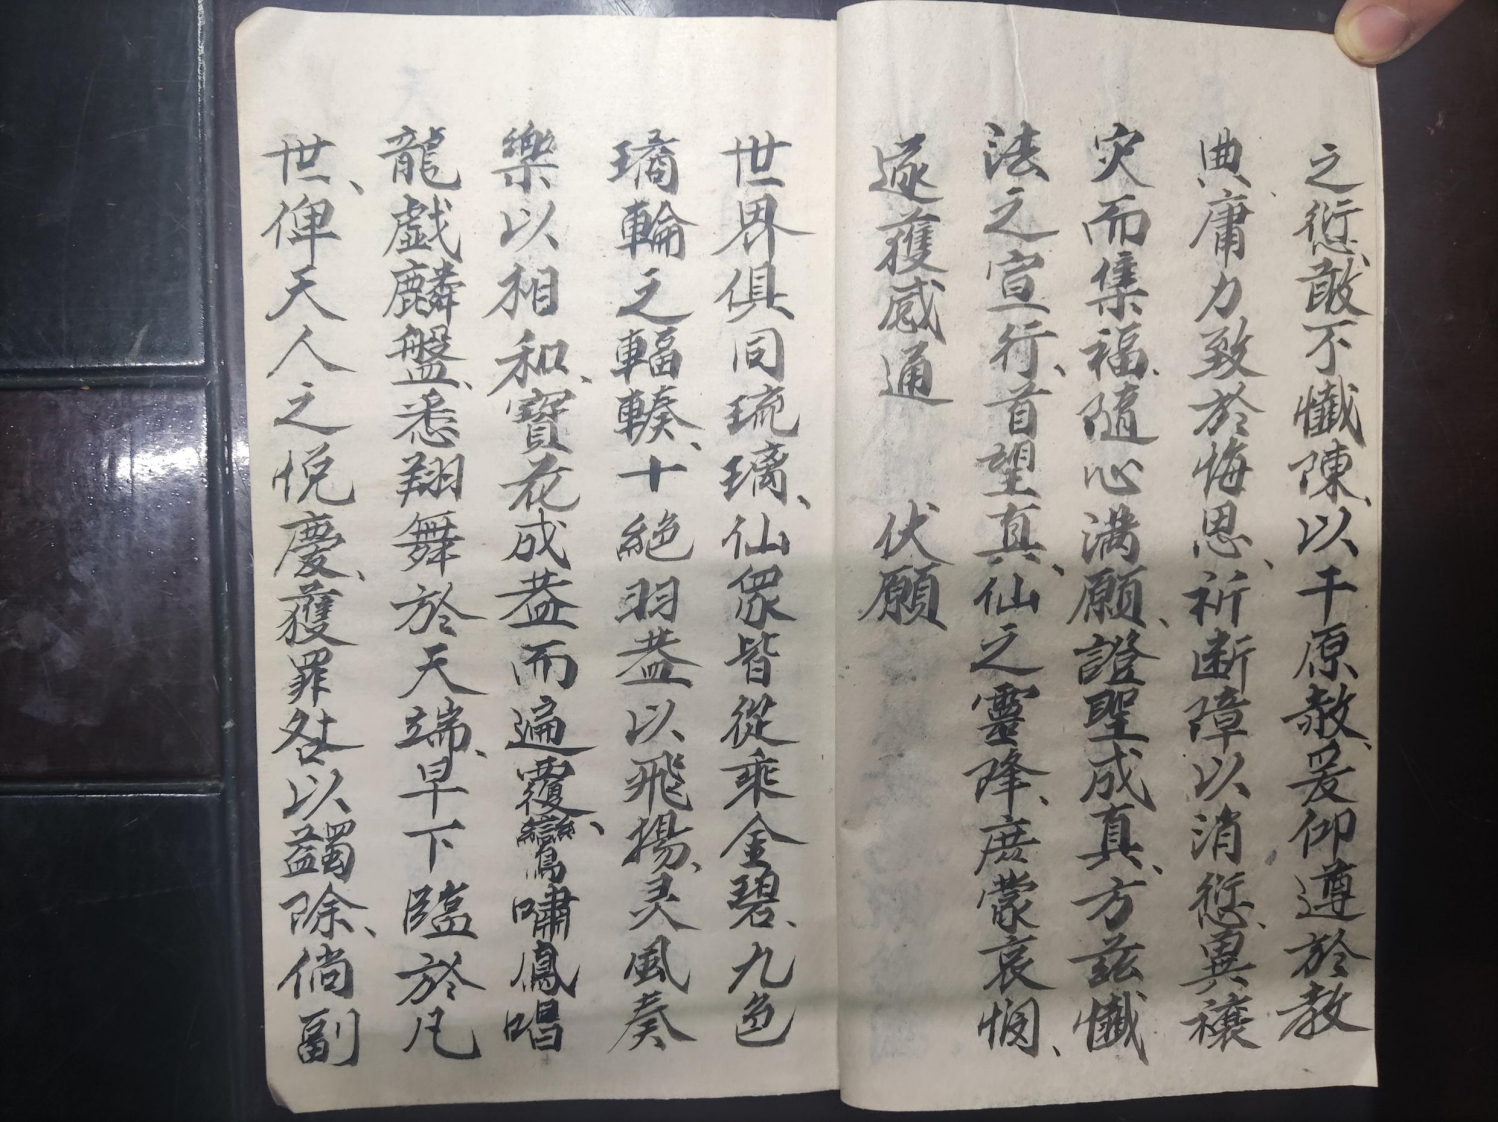 之愆、敢不懺陳、以干原赦、爰仰遵於教
典、庸力致於悔恩、祈断障以消愆、兾禳
灾而集福、随心满願、證聖成真、方兹懺
法之宣行、首望真仙之靈降、庶蒙哀憫、
遂獲感通　伏願
世界俱同琉璃、仙眾皆從乘金碧、九色
璚輪之輻輳、十絕羽蓋以飛揚、灵風奏
樂以相和、寳花成蓋而遍覆、鸞嘯鳳唱
龍戲麟盤、悉翔舞於天端、早下臨於凡
世、俾天人之悅慶、獲罪咎以蠲除、倘副